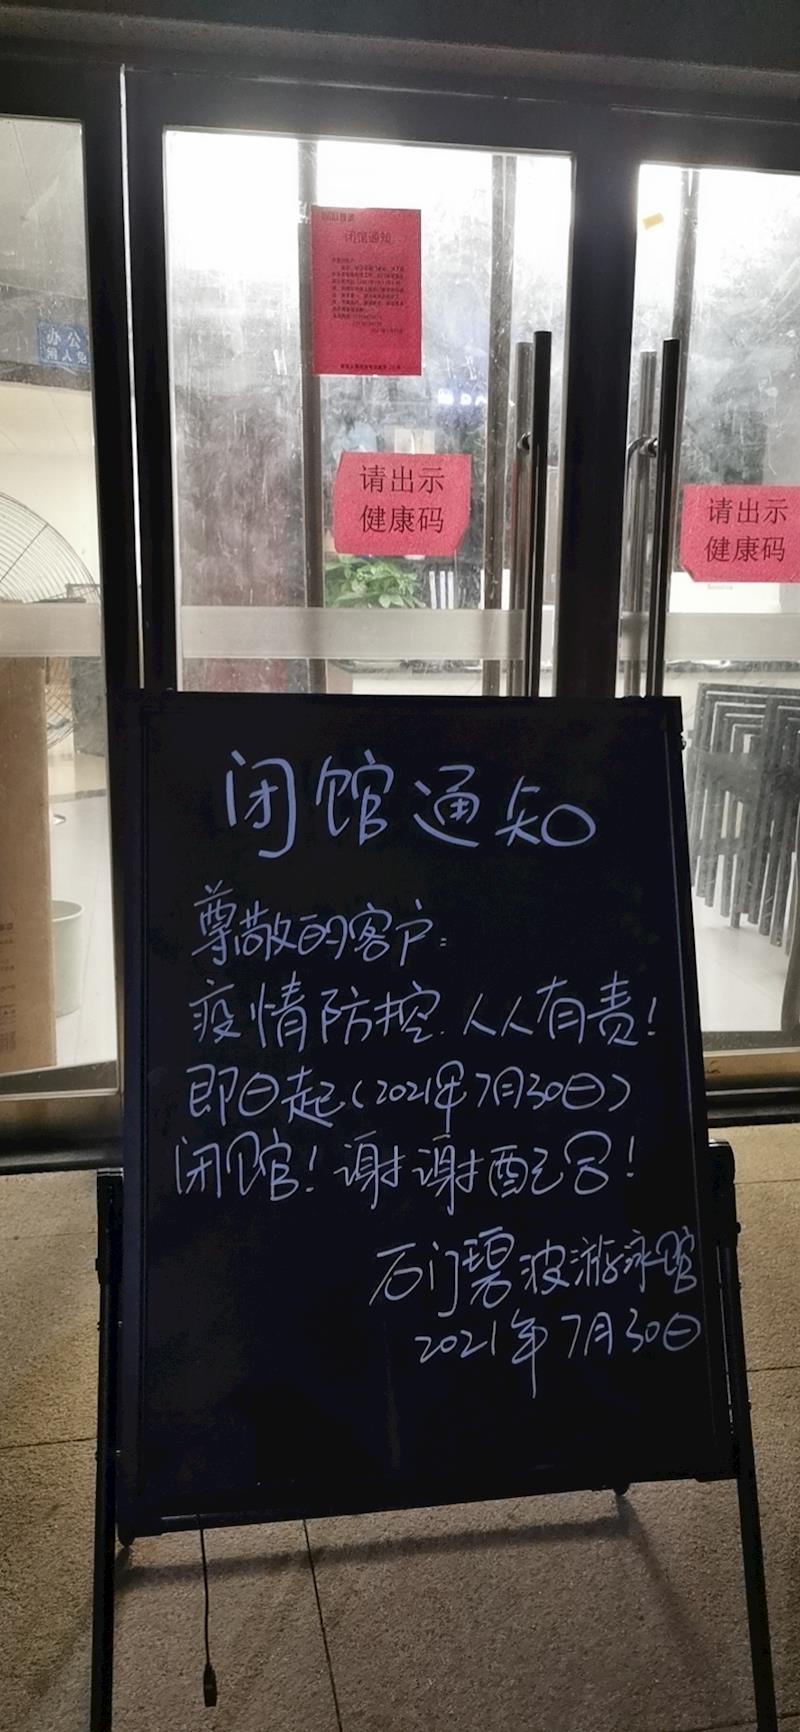 闭馆通知
办公
请出示
健康码
请出示
健康码
闭馆通知
尊敬的客户:
疫情防控.人人有责!
即日起(2021年7月30日)
闭馆!谢谢配合!
石门碧波游泳馆
2021年7月30日